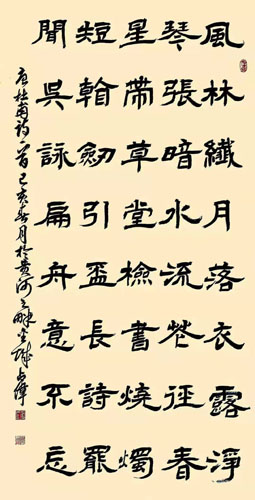 風林纖月落衣露淨
琴張暗水流花徑春
星帶草堂檢書燒燭
短看劒引盃長詩罷
聞吳詠扁舟意不忘
唐杜甫詩一首己亥春月於黄河之畔金城